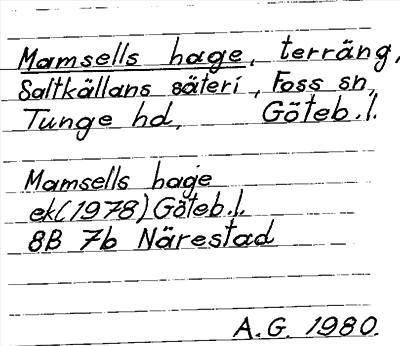 Mamsells hage, terräng,
Saltkällans säteri, Foss sn,
Tunge hd, Göteb.l.
Mamsells hage
ek(1978) Göteb.l.
8B 7b Närestad
A.G. 1980.